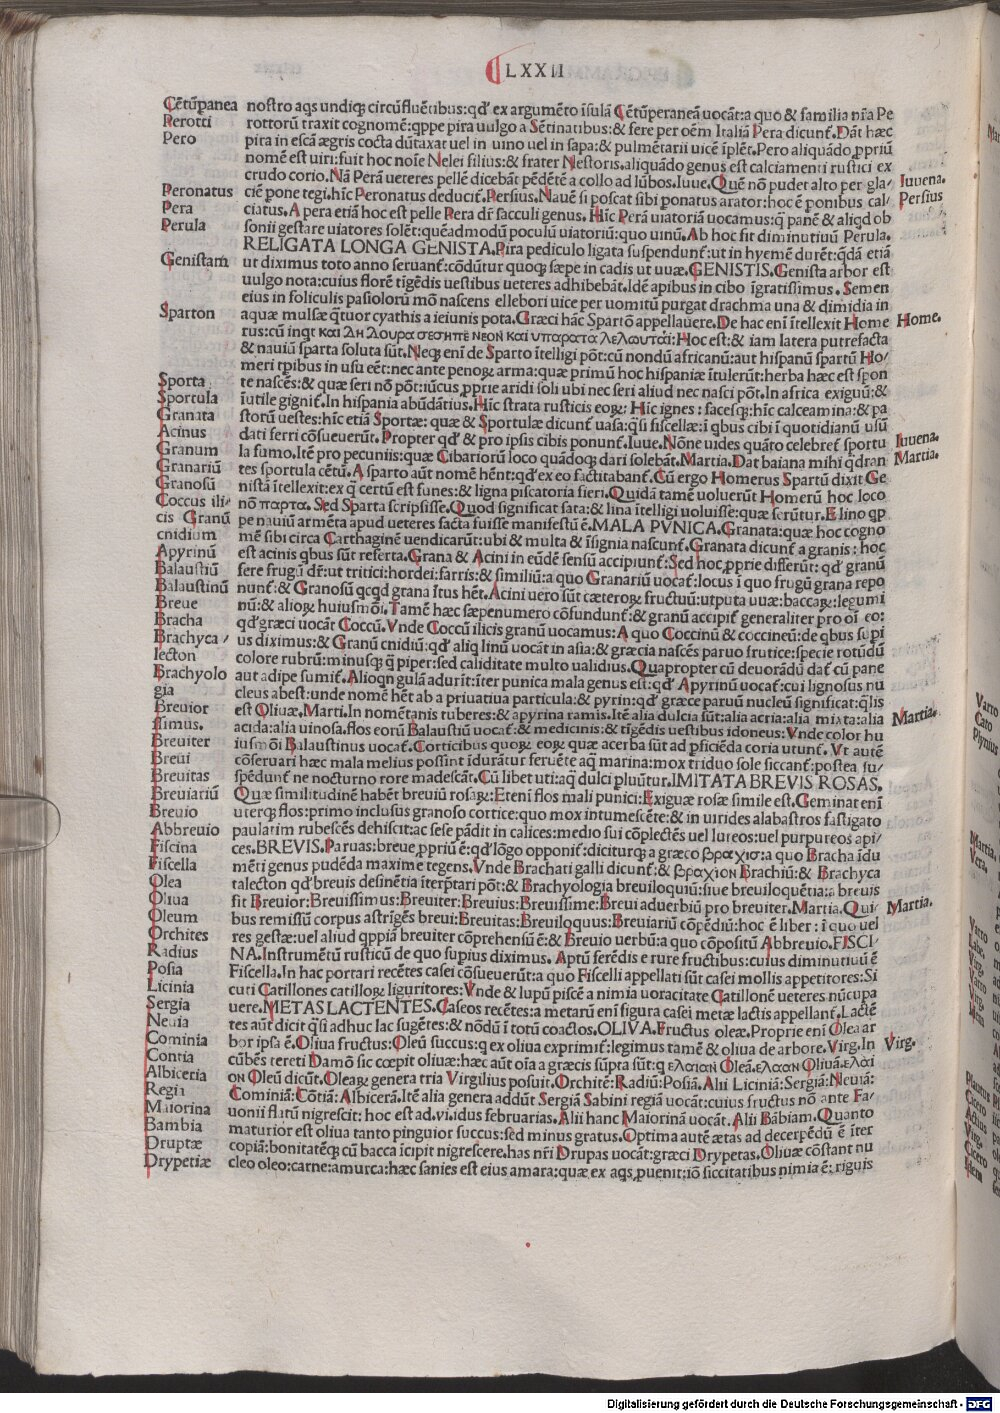 LXXII
Cētūpanea nostro aqs undiq; circūfluētibus: qđ ex argumēto īsulā Cētūperaneā uocāt: a quo & familia nr̄a Pe
Perotti rottorū traxit cognomē: qppe pira uulgo a Sētinatibus: & fere per oēm Italiā Pera dicunt̄. Dāt hæc
Pero pira in escā ægris cocta dūtaxat uel in uino uel in sapa: & pulmētarii uicē īplēt. Pero aliquādo ꝓpriū
nomē est uiri: fuit hoc noīe Nelei filius: & frater Nestoris. aliquādo genus est calciamenti rustici ex
crudo corio. Nā Perā ueteres pellē dicebāt pēdētē a collo ad lūbos. Iuue. Quē nō pudet alto per gla/ Iuuena.
Peronatus ciē pone tegi. hīc Peronatus deducit̄. Persius. Nauē si poscat sibi ꝑonatus arator: hoc ē ꝑonibus cal/ Persius
Pera ciatus. A pera etiā hoc est pelle Pera dr̄ sacculi genus. Hīc Perā uiatoriā uocamus: q̄ panē & aliqd ob
Perula sonii gestare uiatores solēt: quēadmodū poculū uiatoriū: quo uinū. Ab hoc fit diminutiuū Perula.
RELIGATA LONGA GENISTA. Pira pediculo ligata suspendunt̄: ut in hyemē durēt: qdā etiā
Genistam ut diximus toto anno seruant̄: cōdūtur quoq; sæpe in cadis ut uuæ. GENISTIS. Genista arbor est
uulgo nota: cuius florē tīgēdis uestibus ueteres adhibebāt. Idē apibus in cibo īgratissimus. Semen
eius in foliculis pasiolorū mō nascens ellebori uice per uomitū purgat drachma una & dimidia in
Sparton aquæ mulsæ q̄tuor cyathis a ieiunis pota. Græci hāc Spartō appellauere. De hac enī ītellexit Home Home.
rus: cū inqt και Δη Δουρα σεσηπε νεον και υπαρατα λελωται: Hoc est: & iam latera putrefacta
& nauiū sparta soluta sūt. Neq; enī de Sparto ītelligi pōt: cū nondū africanū: aut hispanū spartū Ho/
meri tp̄ibus in usu eēt: nec ante penoꝝ arma: quæ primū hoc hispaniæ ītulerūt: herba hæc est spon
Sporta te nascēs: & quæ seri nō pōt: iūcus ꝓprie aridi soli ubi nec seri aliud nec nasci pōt. In africa exiguū: &
Sportula īutile gignit̄. In hispania abūdātius. Hīc strata rusticis eoꝝ: Hīc ignes: facesq;: hīc calceamīa: & pa
Granata storū uestes: hīc etiā Sportæ: quæ & Sportulæ dicunt̄ uasa: qsi fiscellæ: ī qbus cibi ī quotidianū usū
Acinus dati ferri cōsueuerūt. Propter qđ & pro ipsis cibis ponunt̄. Iuue. Nōne uides quāto celebret̄ sportu Iuuena.
Granum la fumo. Itē pro pecuniis: quæ Cibariorū loco quādoq; dari solebāt. Martia. Dat baiana mihi q̄dran Martia.
Granariū tes sportula cētū. A sparto aūt nomē hēnt: qđ ex eo factitabant̄. Cū ergo Homerus Spartū dixit Ge
Granosū nistā ītellexit: ex q̄ certū est funes: & ligna piscatoria fieri. Quidā tamē uoluerūt Homerū hoc loco
Coccus ili/ nō παρτα. Sed Sparta scripsisse. Quod significat sata: & lina ītelligi uoluisse: quæ serūtur. E lino qp
cis Granū pe nauiū armēta apud ueteres facta fuisse manifestū ē. MALA PVNICA. Granata: quæ hoc cogno
cnidium mē sibi circa Carthaginē uendicarūt: ubi & multa & īsignia nascunt̄. Granata dicunt̄ a granis: hoc
Apyrinū est acinis qbus sūt referta. Grana & Acini in eūdē sensū accipiunt̄: Sed hoc ꝓprie differūt: qđ granū
Balaustiū fere frugū dr̄: ut tritici: hordei: farris: & similiū: a quo Granariū uocat̄: locus ī quo frugū grana repo
Balaustinū nunt̄: & Granosū qcqd grana ītus hēt. Acini uero sūt cæteroꝝ fructuū: utputa uuæ: baccaꝝ: legumi
Breue nū: & alioꝝ huiusmōi. Tamē hæc sæpenumero cōfundunt̄: & granū accipit̄ generaliter pro oī eo:
Bracha qđ græci uocāt Coccū. Vnde Coccū ilicis granū uocamus: A quo Coccinū & coccineū: de qbus supi
Brachyca/ us diximus: & Granū cnidiū: qđ aliq linū uocāt in asia: & græcia nascēs paruo frutice: specie rotūdū
lecton colore rubrū: minusq; q̄ piper: sed caliditate multo ualidius. Quapropter cū deuorādū dat̄ cū pane
Brachyolo aut adipe sumit̄. Alioqn gulā adurit: īter punica mala genus est: qđ Apyrinū uocat̄: cui lignosus nu
gia cleus abest: unde nomē hēt ab a priuatiua particula: & pyrin: qđ græce paruū nucleū significat: q̄lis
Breuior est Oliuæ. Marti. In nomētanis tuberes: & apyrina ramis. Itē alia dulcia sūt: alia acria: alia mixta: alia Martia.
issimus. acida: alia uinosa. flos eorū Balaustiū uocat̄: & medicinis: & tīgēdis uestibus idoneus: Vnde color hu
Breuiter iusmōi Balaustinus uocat̄. Corticibus quoꝝ eoꝝ quæ acerba sūt ad ꝑficiēda coria utunt̄. Vt autē
Breui cōseruari hæc mala melius possint īdurātur feruēte aq̄ marina: mox triduo sole siccant̄: postea su/
Breuitas spēdunt̄ ne nocturno rore madescāt. Cū libet uti: aq̄ dulci pluūtur. IMITATA BREVIS ROSAS.
Breuiariū Quæ similitudinē habēt breuiū rosaꝝ: Etenī flos mali punici: Exiguæ rosæ simile est. Geminat enī
Breuio uterq; flos: primo inclusus granoso cortice: quo mox intumescēte: & in uirides alabastros fastigato
Abbreuio paulatim rubescēs dehiscit: ac sese pādit in calices: medio sui cōplectēs uel luteos: uel purpureos api/
Fiscina ces. BREVIS. Paruas: breue ꝓpriū ē: qđ lōgo opponit̄: diciturq; a græco βραχισ: a quo Bracha īdu
Fiscella mēti genus pudēda maxime tegens. Vnde Brachati galli dicunt̄: & βραχιον Brachiū: & Brachyca
Olea talecton qđ breuis desinētia īterp̄tari pōt: & Brachyologia breuiloquiū: siue breuiloquētia: a breuis
Oliua fit Breuior: Breuissimus: Breuiter: Breuius: Breuissime: Breui aduerbiū pro breuiter. Martia. Qui/ Martia.
Oleum bus remissiū corpus astrigēs breui: Breuitas: Breuiloquus: Breuiariū cōpēdiū: hoc ē liber: ī quo uel
Orchites res gestæ: uel aliud qppiā breuiter cōprehensū ē: & Breuio uerbū: a quo cōpositū Abbreuio. FISCI/
Radius NA. Instrumētū rusticū de quo supius diximus. Aptū ferēdis e rure fructibus: cuius diminutiuū ē
Posia Fiscella. In hac portari recētes casei cōsueuerūt: a quo Fiscelli appellati sūt casei mollis appetitores: Si
Licinia cuti Catillones catilloꝝ liguritores: Vnde & lupū piscē a nimia uoracitate Catillonē ueteres nūcupa
Sergia uere. METAS LACTENTES. Caseos recētes: a metarū enī figura casei metæ lactis appellant̄. Lactē
Neuia tes aūt dicit qsi adhuc lac sugētes: & nōdū ī totū coactos. OLIVA. Fructus oleæ. Proprie enī Olea ar
Cominia bor ipsa ē. Oliua fructus: Oleū succus: q ex oliua exprimit̄: legimus tamē & oliua de arbore. Virg. In Virg.
Contia cūbēs tereti Damō sic cœpit oliuæ: hæc aūt oīa a græcis sūpta sūt: q ελαιαν Oleā. ελααν Oliuā. ελαι
Albiceria ον Oleū dicūt. Oleaꝝ genera tria Virgilius posuit. Orchitē: Radiū: Posiā. Alii Liciniā: Sergiā: Neuiā:
Regia Cominiā: Cōtiā: Albicerā. Itē alia genera addūt Sergiā Sabini regiā uocāt: cuius fructus nō ante Fa/
Maiorina uonii flatū nigrescit: hoc est ad .vi. idus februarias. Alii hanc Maiorinā uocāt. Alii Bābiam. Quanto
Bambia maturior est oliua tanto pinguior succus: sed minus gratus. Optima autē ætas ad decerpēdū ē īter
Druptæ copiā: bonitatēq; cū bacca īcipit nigrescere. has nr̄i Drupas uocāt: græci Drypetas. Oliuæ cōstant nu
Drypetiæ cleo oleo: carne: amurca: hæc sanies est eius amara: quæ ex aqs ꝓuenit: iō siccitatibus nimia ē: riguis
Digitalisierung gefördert durch die Deutsche Forschungsgemeinschaft - DFG